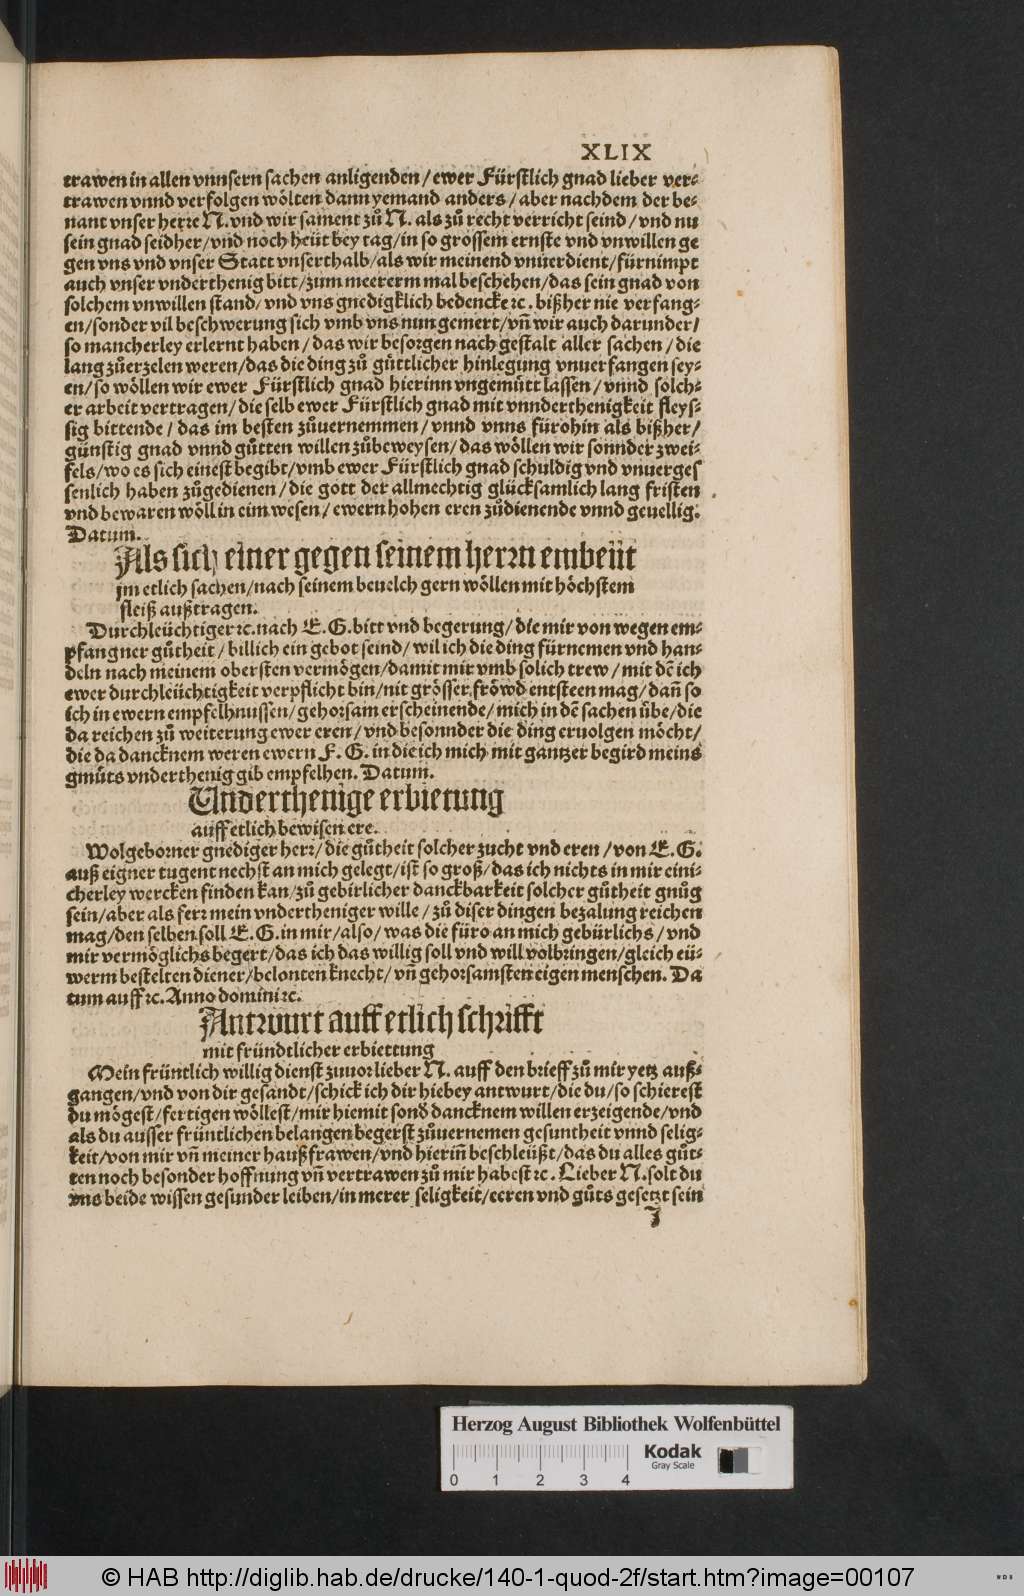 XLIX
trawen in allen vnnsern sachen anligenden / ewer Fürstlich gnad lieber ver-
trawen vnnd verfolgen wölten dann yemand anders / aber nachdem der be-
nant vnser herre N. vnd wir sament zů N. als zů recht verricht seind / vnd nu
sein gnad seidher / vnd noch heüt bey tag / in so grossem ernste vnd vnwillen ge
gen vns vnd vnser Statt vnserthalb / als wir meinend vnuerdient / fürnimpt
auch vnser vnderthenig bitt / zum meererm mal beschehen / das sein gnad von
solchem vnwillen stand / vnd vns gnedigklich bedencke ꝛc. bißher nie verfang-
en / sonder vil beschwerung sich vmb vns nun gemert / vñ wir auch darunder /
so mancherley erlernt haben / das wir besorgen nach gestalt aller sachen / die
lang zůerzelen weren / das die ding zů gůttlicher hinlegung vnuerfangen sey-
en / so wöllen wir ewer Fürstlich gnad hierinn vngemůtt lassen / vnnd solch-
er arbeit vertragen / die selb ewer Fürstlich gnad mit vnnderthenigkeit fleys-
sig bittende / das im besten zůuernemmen / vnnd vnns fürohin als bißher /
günstig gnad vnnd gůtten willen zůbeweysen / das wöllen wir sonnder zwei-
fels / wo es sich einest begibt / vmb ewer Fürstlich gnad schuldig vnd vnuerges
senlich haben zůgedienen / die gott der allmechtig glücksamlich lang fristen
vnd bewaren wöll in eim wesen / ewern hohen eren zůdienende vnnd geuellig.
Datum.
Als sich einer gegen seinem herrn embeüt
jm etlich sachen / nach seinem beuelch gern wöllen mit höchstem
fleiß außtragen.
Durchleüchtiger ꝛc. nach E. G. bitt vnd begerung / die mir von wegen em-
pfangner gůtheit / billich ein gebot seind / wil ich die ding fürnemen vnd han-
deln nach meinem obersten vermögen / damit mir vmb solich trew / mit dẽ ich
ewer durchleüchtigkeit verpflicht bin / nit grösser fröwd entsteen mag / dañ so
ich in ewern empfelhnussen / gehorsam erscheinende / mich in dẽ sachen ůbe / die
da reichen zů weiterung ewer eren / vnd besonnder die ding eruolgen möcht /
die da dancknem weren ewern F. G. in die ich mich mit gantzer begird meins
gmůts vnderthenig gib empfelhen. Datum.
Underthenige erbietung
auff etlich bewisen ere.
Wolgeborner gnediger herr / die gůtheit solcher zucht vnd eren / von E. G.
auß eigner tugent nechst an mich gelegt / ist so groß / das ich nichts in mir eini-
cherley wercken finden kan / zů gebirlicher danckbarkeit solcher gůtheit gnůg
sein / aber als ferr mein vndertheniger wille / zů diser dingen bezalung reichen
mag / den selben soll E. G. in mir / also / was die füro an mich gebürlichs / vnd
mir vermöglichs begert / das ich das willig soll vnd will volbringen / gleich eü-
werm bestelten diener / belonten knecht / vñ gehorsamsten eigen menschen. Da
tum auff ꝛc. Anno domini ꝛc.
Antwurt auff etlich schrifft
mit fründtlicher erbiettung
Mein früntlich willig dienst zuuor lieber N. auff den brieff zů mir yetz auß-
gangen / vnd von dir gesandt / schick ich dir hiebey antwurt / die du / so schierest
du mögest / fertigen wöllest / mir hiemit sond̃ dancknem willen erzeigende / vnd
als du ausser früntlichen belangen begerst zůuernemen gesuntheit vnnd selig-
keit / von mir vñ meiner haußfrawen / vnd hieriñ beschleüßt / das du alles gůt-
ten noch besonder hoffnung vñ vertrawen zů mir habest ꝛc. Lieber N. solt du
vns beide wissen gesunder leiben / in merer seligkeit / eeren vnd gůts gesetzt sein
J
Herzog August Bibliothek Wolfenbüttel
Kodak
Gray Scale
0 1 2 3 4
© HAB http://diglib.hab.de/drucke/140-1-quod-2f/start.htm?image=00107